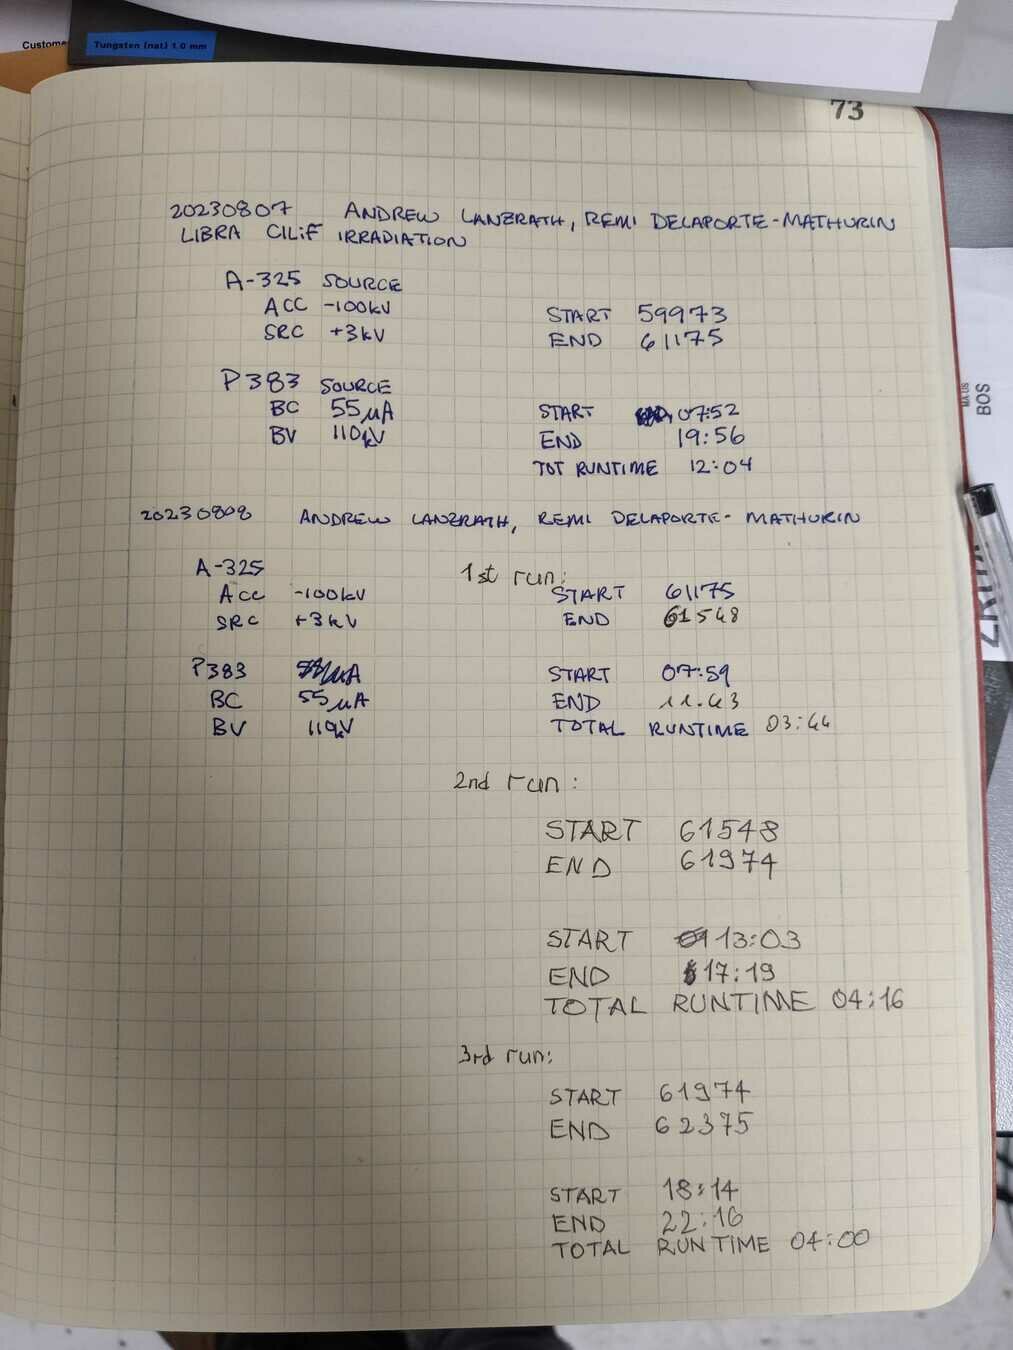 Custome
Tungsten (nat) 1.0 mm
73
20230807 ANDREW LANZRATH, REMI DELAPORTE-MATHURIN
LIBRA ClLiF IRRADIATION
A-325 SOURCE
ACC -100kV
SRC +3kV
START 59973
END 61175
P383 SOURCE
BC 55µA
BV 110kV
START 07:52
END 19:56
TOT RUNTIME 12:04
20230808 ANDREW LANZRATH, REMI DELAPORTE-MATHURIN
A-325
ACC -100kV
SRC +3kV
1st run:
START 61175
END 61548
P383
BC 55µA
BV 110kV
START 07:59
END 11:43
TOTAL RUNTIME 03:44
2nd run:
START 61548
END 61974
START 13:03
END 17:19
TOTAL RUNTIME 04:16
3rd run:
START 61974
END 62375
START 18:14
END 22:16
TOTAL RUNTIME 04:00
BOS